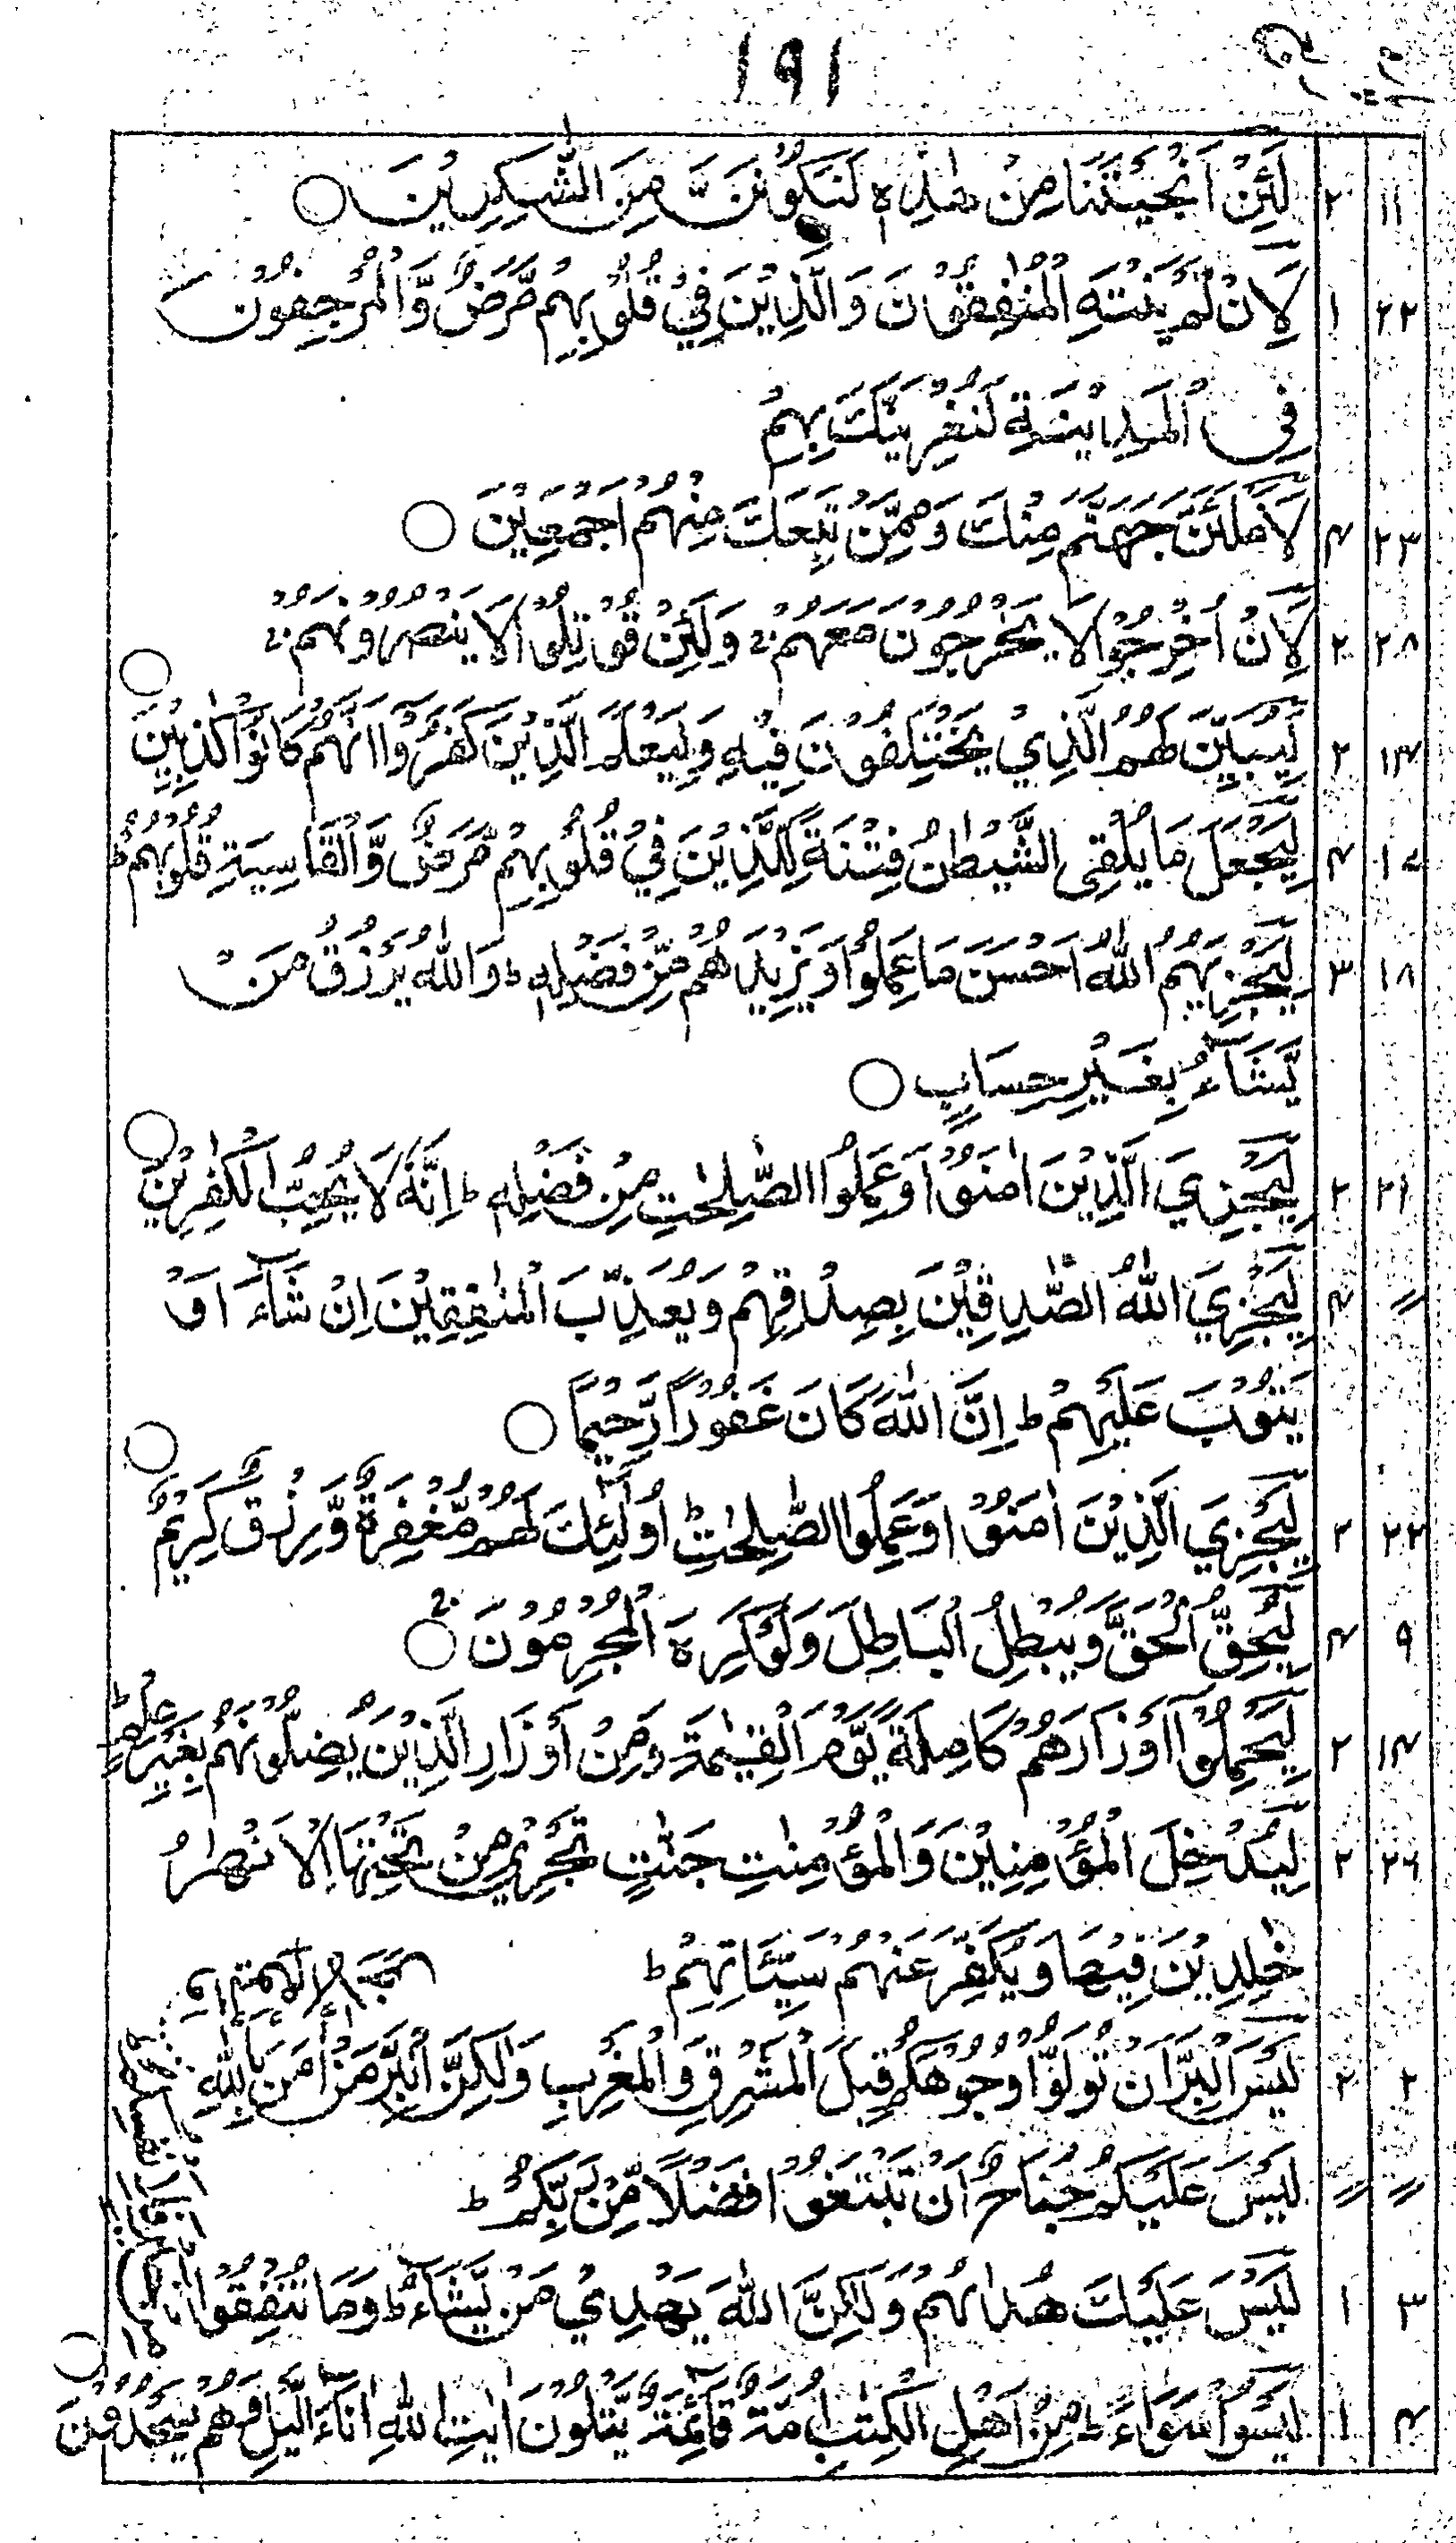 ١٩١
١١ ٢ لَئِنْ اَنْجَيْتَنَا مِنْ هٰذِهٖ لَنَكُوْنَنَّ مِنَ الشّٰكِرِيْنَ ○
٢٢ ١ لَاِنْ لَّمْ يَنْتَهِ الْمُنٰفِقُوْنَ وَالَّذِيْنَ فِيْ قُلُوْبِهِمْ مَّرَضٌ وَّالْمُرْجِفُوْنَ
فِى الْمَدِيْنَةِ لَنُغْرِيَنَّكَ بِهِمْ
٢٣ ٤ لَاَمْلَئَنَّ جَهَنَّمَ مِنْكَ وَمِمَّنْ تَبِعَكَ مِنْهُمْ اَجْمَعِيْنَ ○
٢٨ ٢ لَاِنْ اُخْرِجُوْا لَا يَخْرُجُوْنَ مَعَهُمْ وَلَئِنْ قُوْتِلُوْا لَا يَنْصُرُوْنَهُمْ
١٤ ٢ لِيُبَيِّنَ لَهُمُ الَّذِيْ يَخْتَلِفُوْنَ فِيْهِ وَلِيَعْلَمَ الَّذِيْنَ كَفَرُوْا اَنَّهُمْ كَانُوْا كٰذِبِيْنَ ○
١٧ ٤ لِيَجْعَلَ مَا يُلْقِى الشَّيْطٰنُ فِتْنَةً لِّلَّذِيْنَ فِيْ قُلُوْبِهِمْ مَّرَضٌ وَّالْقَاسِيَةِ قُلُوْبُهُمْ ط
١٨ ٣ لِيَجْزِيَهُمُ اللّٰهُ اَحْسَنَ مَا عَمِلُوْا وَيَزِيْدَهُمْ مِّنْ فَضْلِهٖ ط وَاللّٰهُ يَرْزُقُ مَنْ
يَّشَآءُ بِغَيْرِ حِسَابٍ ○
٢١ ٢ لِيَجْزِيَ الَّذِيْنَ اٰمَنُوْا وَعَمِلُوا الصّٰلِحٰتِ مِنْ فَضْلِهٖ ط اِنَّهٗ لَا يُحِبُّ الْكٰفِرِيْنَ ○
〃 ٤ لِيَجْزِيَ اللّٰهُ الصّٰدِقِيْنَ بِصِدْقِهِمْ وَيُعَذِّبَ الْمُنٰفِقِيْنَ اِنْ شَآءَ اَوْ
يَتُوْبَ عَلَيْهِمْ ط اِنَّ اللّٰهَ كَانَ غَفُوْرًا رَّحِيْمًا ○
٢٢ ٢ لِيَجْزِيَ الَّذِيْنَ اٰمَنُوْا وَعَمِلُوا الصّٰلِحٰتِ ط اُولٰٓئِكَ لَهُمْ مَّغْفِرَةٌ وَّرِزْقٌ كَرِيْمٌ ○
٩ ٤ لِيُحِقَّ الْحَقَّ وَيُبْطِلَ الْبَاطِلَ وَلَوْ كَرِهَ الْمُجْرِمُوْنَ ○
١٤ ٢ لِيَحْمِلُوْٓا اَوْزَارَهُمْ كَامِلَةً يَّوْمَ الْقِيٰمَةِ وَمِنْ اَوْزَارِ الَّذِيْنَ يُضِلُّوْنَهُمْ بِغَيْرِ عِلْمٍ ط
٢٦ ٢ لِيُدْخِلَ الْمُؤْمِنِيْنَ وَالْمُؤْمِنٰتِ جَنّٰتٍ تَجْرِيْ مِنْ تَحْتِهَا الْاَنْهٰرُ
خٰلِدِيْنَ فِيْهَا وَيُكَفِّرَ عَنْهُمْ سَيِّاٰتِهِمْ ط
٢ ٢ لَيْسَ الْبِرَّ اَنْ تُوَلُّوْا وُجُوْهَكُمْ قِبَلَ الْمَشْرِقِ وَالْمَغْرِبِ وَلٰكِنَّ الْبِرَّ مَنْ اٰمَنَ بِاللّٰهِ
〃 〃 لَيْسَ عَلَيْكُمْ جُنَاحٌ اَنْ تَبْتَغُوْا فَضْلًا مِّنْ رَّبِّكُمْ ط
٣ ١ لَيْسَ عَلَيْكَ هُدٰىهُمْ وَلٰكِنَّ اللّٰهَ يَهْدِيْ مَنْ يَّشَآءُ ط وَمَا تُنْفِقُوْا
٤ ١ لَيْسُوْا سَوَآءً ط مِنْ اَهْلِ الْكِتٰبِ اُمَّةٌ قَآئِمَةٌ يَّتْلُوْنَ اٰيٰتِ اللّٰهِ اٰنَآءَ الَّيْلِ وَهُمْ يَسْجُدُوْنَ ○